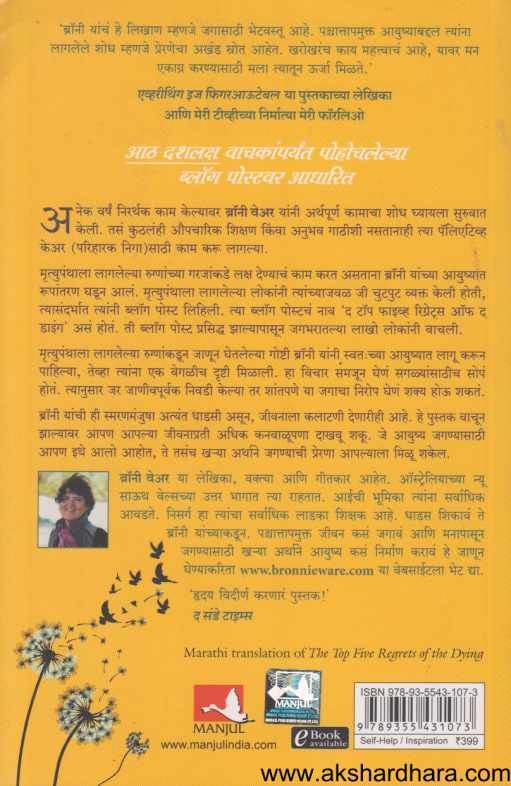 'ब्रॉनी यांचं हे लिखाण म्हणजे जगासाठी भेटवस्तू आहे. पश्चात्तापमुक्त आयुष्याबद्दल त्यांना
लागलेले शोध म्हणजे प्रेरणेचा अखंड स्रोत आहेत. खरोखरंच काय महत्त्वाचं आहे, यावर मन
एकाग्र करण्यासाठी मला त्यातून ऊर्जा मिळते.'
एव्हरीथिंग इज फिगरआऊटेबल या पुस्तकाच्या लेखिका
आणि मेरी टीव्हीच्या निर्मात्या मेरी फॉरलिओ
आठ दशलक्ष वाचकांपर्यंत पोहोचलेल्या
ब्लॉग पोस्टवर आधारित
अनेक वर्षं निरर्थक काम केल्यावर ब्रॉनी वेअर यांनी अर्थपूर्ण कामाचा शोध घ्यायला सुरुवात
केली. तसं कुठलंही औपचारिक शिक्षण किंवा अनुभव गाठीशी नसतानाही त्या पॅलिएटिव्ह
केअर (परिहारक निगा)साठी काम करू लागल्या.
मृत्युपंथाला लागलेल्या रुग्णांच्या गरजांकडे लक्ष देण्याचं काम करत असताना ब्रॉनी यांच्या आयुष्यांत
रूपांतरण घडून आलं. मृत्युपंथाला लागलेल्या लोकांनी त्यांच्याजवळ जी चुटपुट व्यक्त केली होती,
त्यासंदर्भात त्यांनी ब्लॉग पोस्ट लिहिली. त्या ब्लॉग पोस्टचं नाव 'द टॉप फाइव्ह रिग्रेट्स ऑफ द
डाइंग' असं होतं. ती ब्लॉग पोस्ट प्रसिद्ध झाल्यापासून जगभरातल्या लाखो लोकांनी वाचली.
मृत्युपंथाला लागलेल्या रुग्णांकडून जाणून घेतलेल्या गोष्टी ब्रॉनी यांनी स्वतःच्या आयुष्यात लागू करून
पाहिल्या, तेव्हा त्यांना एक वेगळीच दृष्टी मिळाली. हा विचार समजून घेणं सगळ्यांसाठीच सोपं
होतं. त्यानुसार जर जाणीवपूर्वक निवडी केल्या तर शांतपणे या जगाचा निरोप घेणं शक्य होऊ शकतं.
ब्रॉनी यांची ही स्मरणमंजुषा अत्यंत धाडसी असून, जीवनाला कलाटणी देणारीही आहे. हे पुस्तक वाचून
झाल्यावर आपण आपल्या जीवनाप्रती अधिक कनवाळूपणा दाखवू शकू. जे आयुष्य जगण्यासाठी
आपण इथे आलो आहोत, ते तसंच खऱ्या अर्थाने जगण्याची प्रेरणा आपल्याला मिळू शकेल.
ब्रॉनी वेअर या लेखिका, वक्त्या आणि गीतकार आहेत. ऑस्ट्रेलियाच्या न्यू
साऊथ वेल्सच्या उत्तर भागात त्या राहतात. आईची भूमिका त्यांना सर्वाधिक
आवडते. निसर्ग हा त्यांचा सर्वाधिक लाडका शिक्षक आहे. धाडस शिकावं ते
ब्रॉनी यांच्याकडून. पश्चात्तापमुक्त जीवन कसं जगावं आणि मनापासून
जगण्यासाठी खऱ्या अर्थाने आयुष्य कसं निर्माण करावं हे जाणून
घेण्याकरिता www.bronnieware.com या वेबसाईटला भेट द्या.
'हृदय विदीर्ण करणारं पुस्तक!'
द संडे टाइम्स
Marathi translation of The Top Five Regrets of the Dying
MANJUL
www.manjulindia.com
MANJUL
eBook
available
ISBN 978-93-5543-107-3
9 789355 431073
Self-Help / Inspiration ₹399
www.akshardhara.com